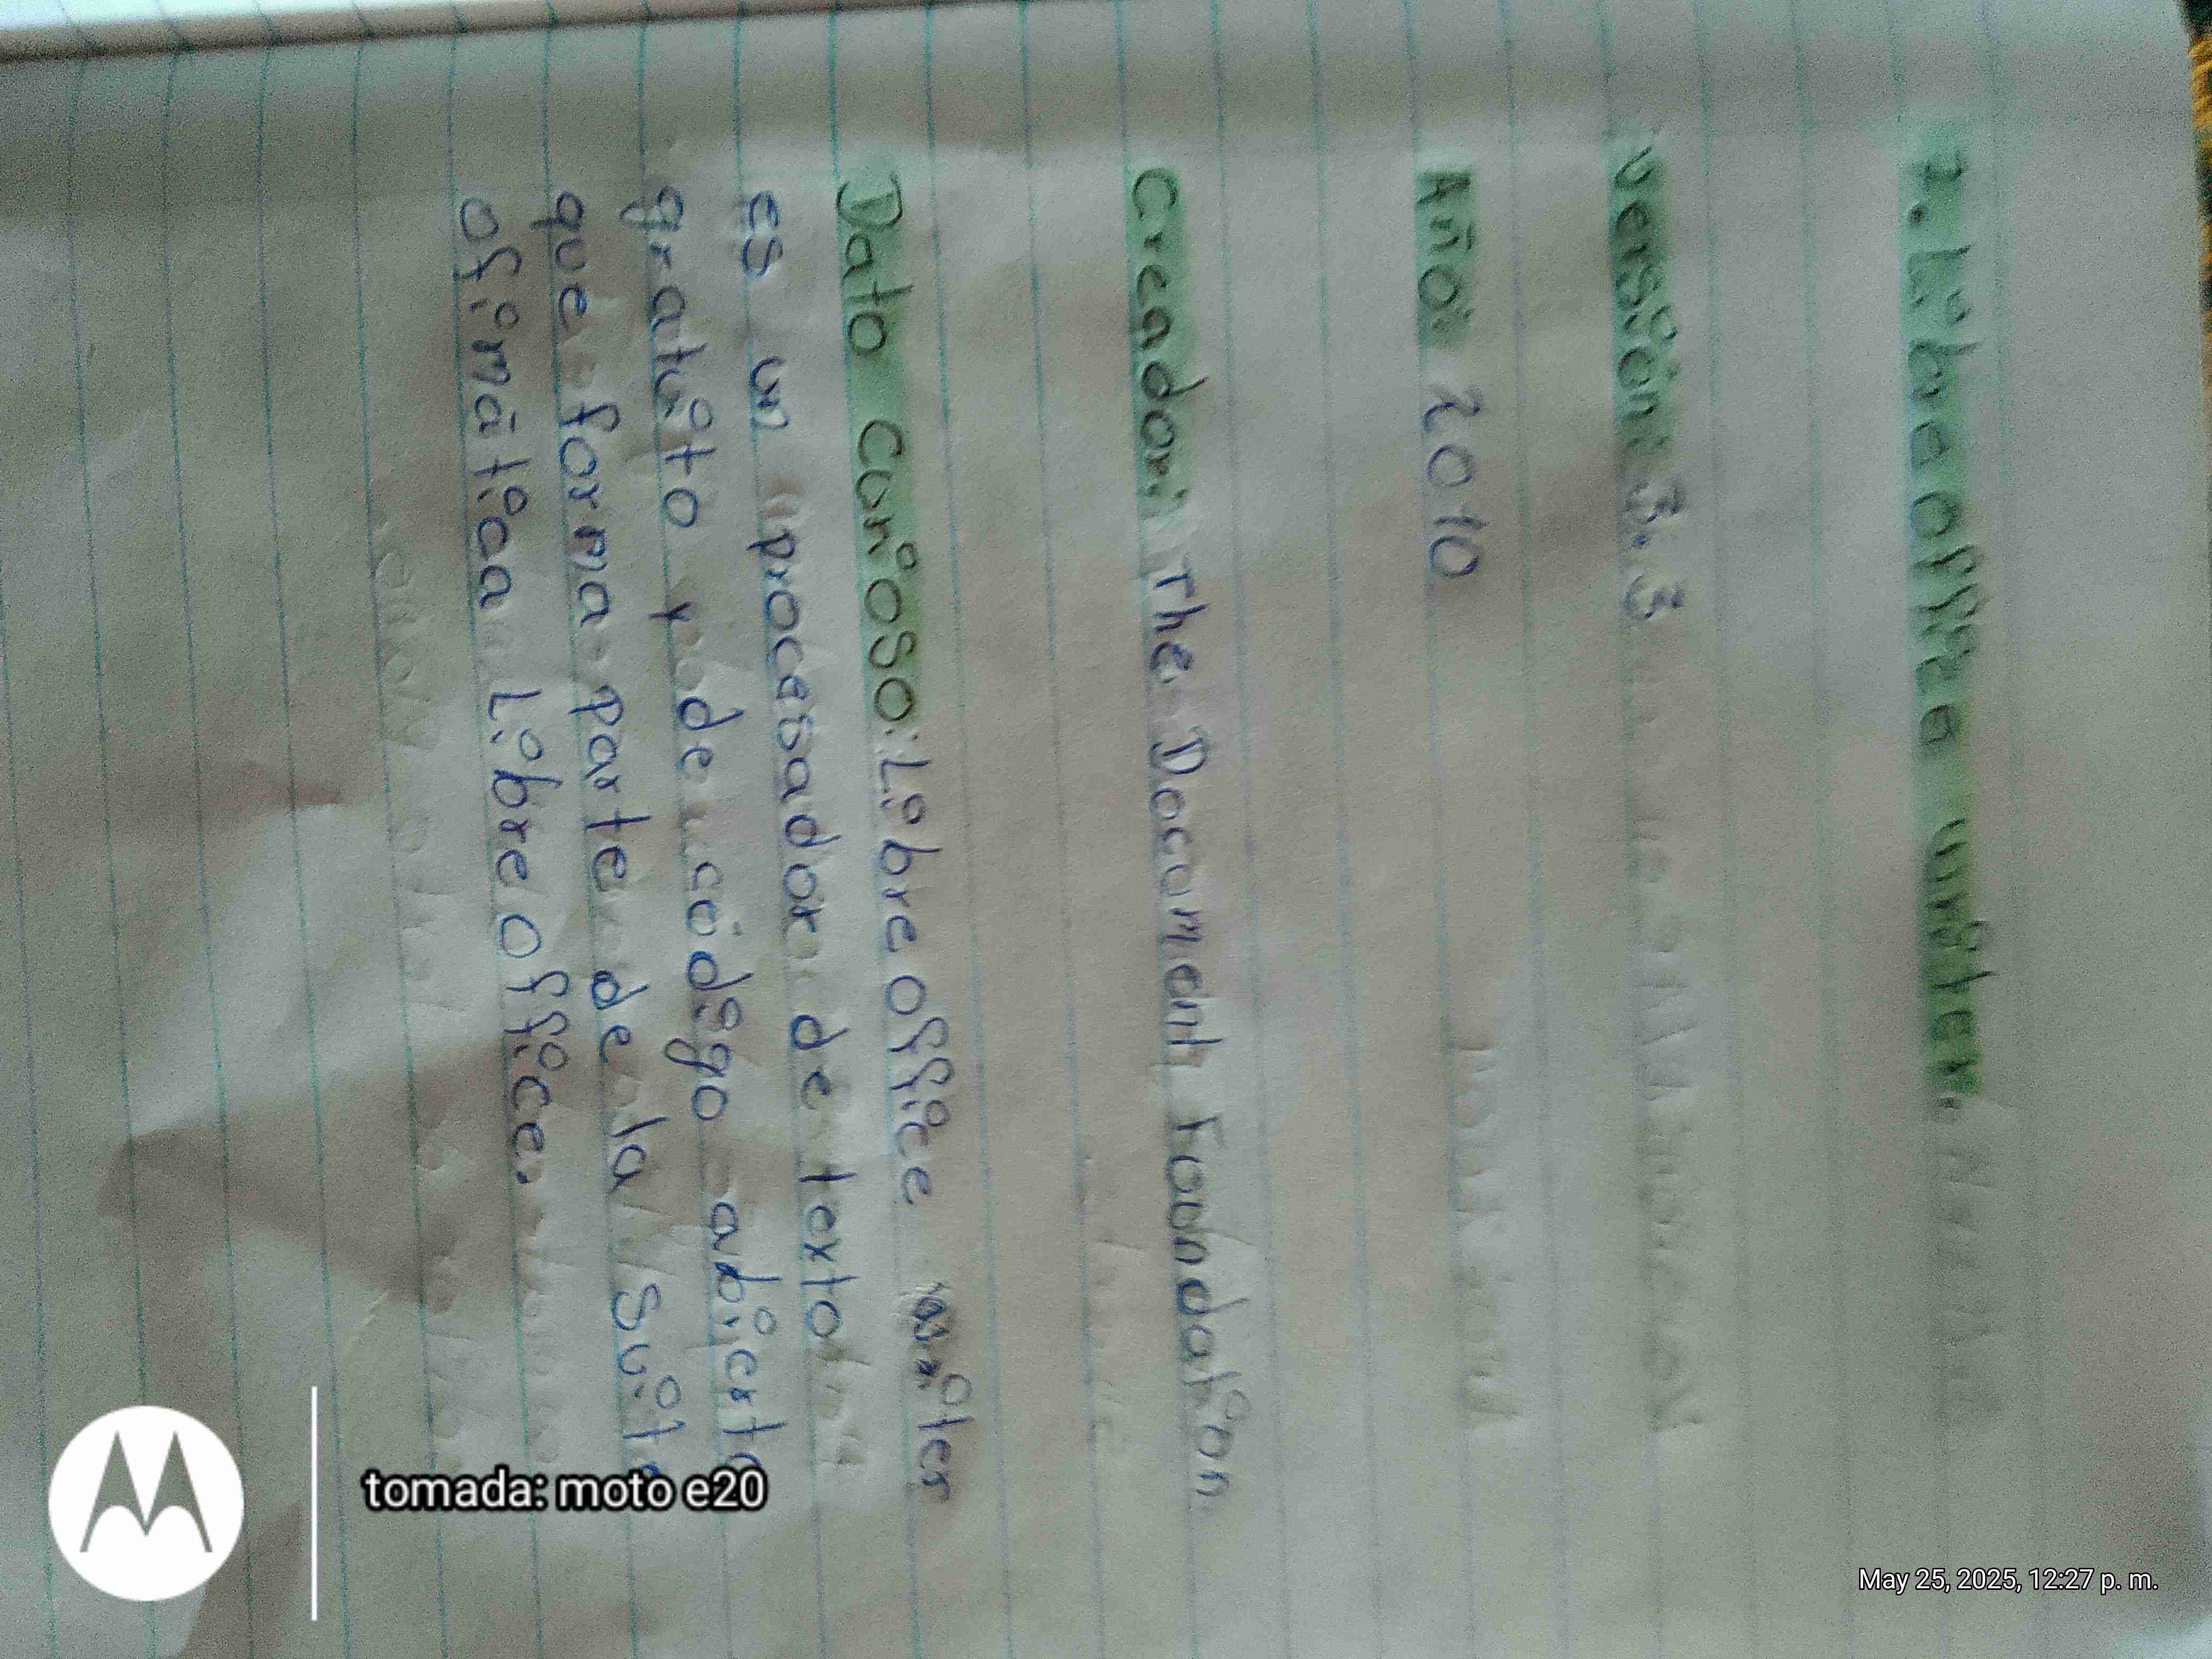 7. Libre office writer.
Versión: 3.3
Año: 2010
Creador: The Document Foondation
Dato Curioso: Libre office writer
es un procesador de texto
gratuito y de código abierto
que forma parte de la suite
ofimática Libre office.
tomada: moto e20
May 25, 2025, 12:27 p. m.